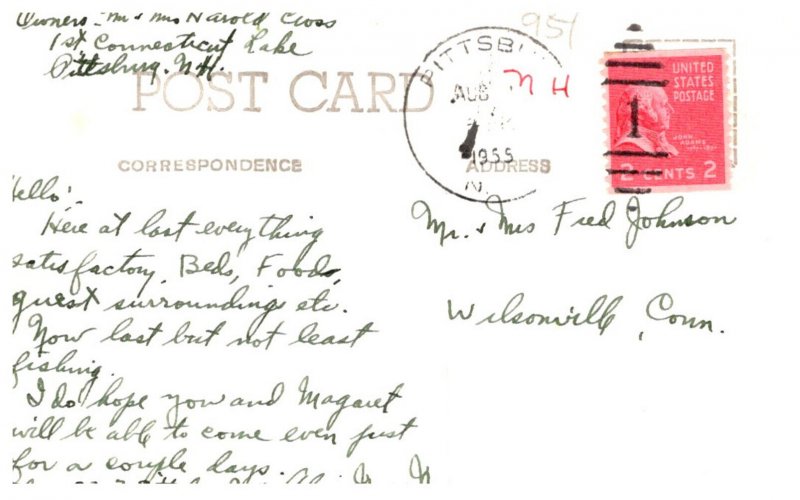 Owners - Mr & Mrs Harold Cross
1st Connecticut Lake
Pittsburg, N.H.
951
POST CARD
PITTSBU
N H
AUG
1955
N.
1
UNITED
STATES
POSTAGE
JOHN
ADAMS
2 CENTS 2
CORRESPONDENCE
ADDRESS
Hello!
Here at last everything
satisfactory, Beds, Foods,
guest surroundings etc.
Now last but not least
fishing.
I do hope you and Magaret
will be able to come even just
for a couple days.
Mr. & Mrs Fred Johnson
Wilsonville, Conn.